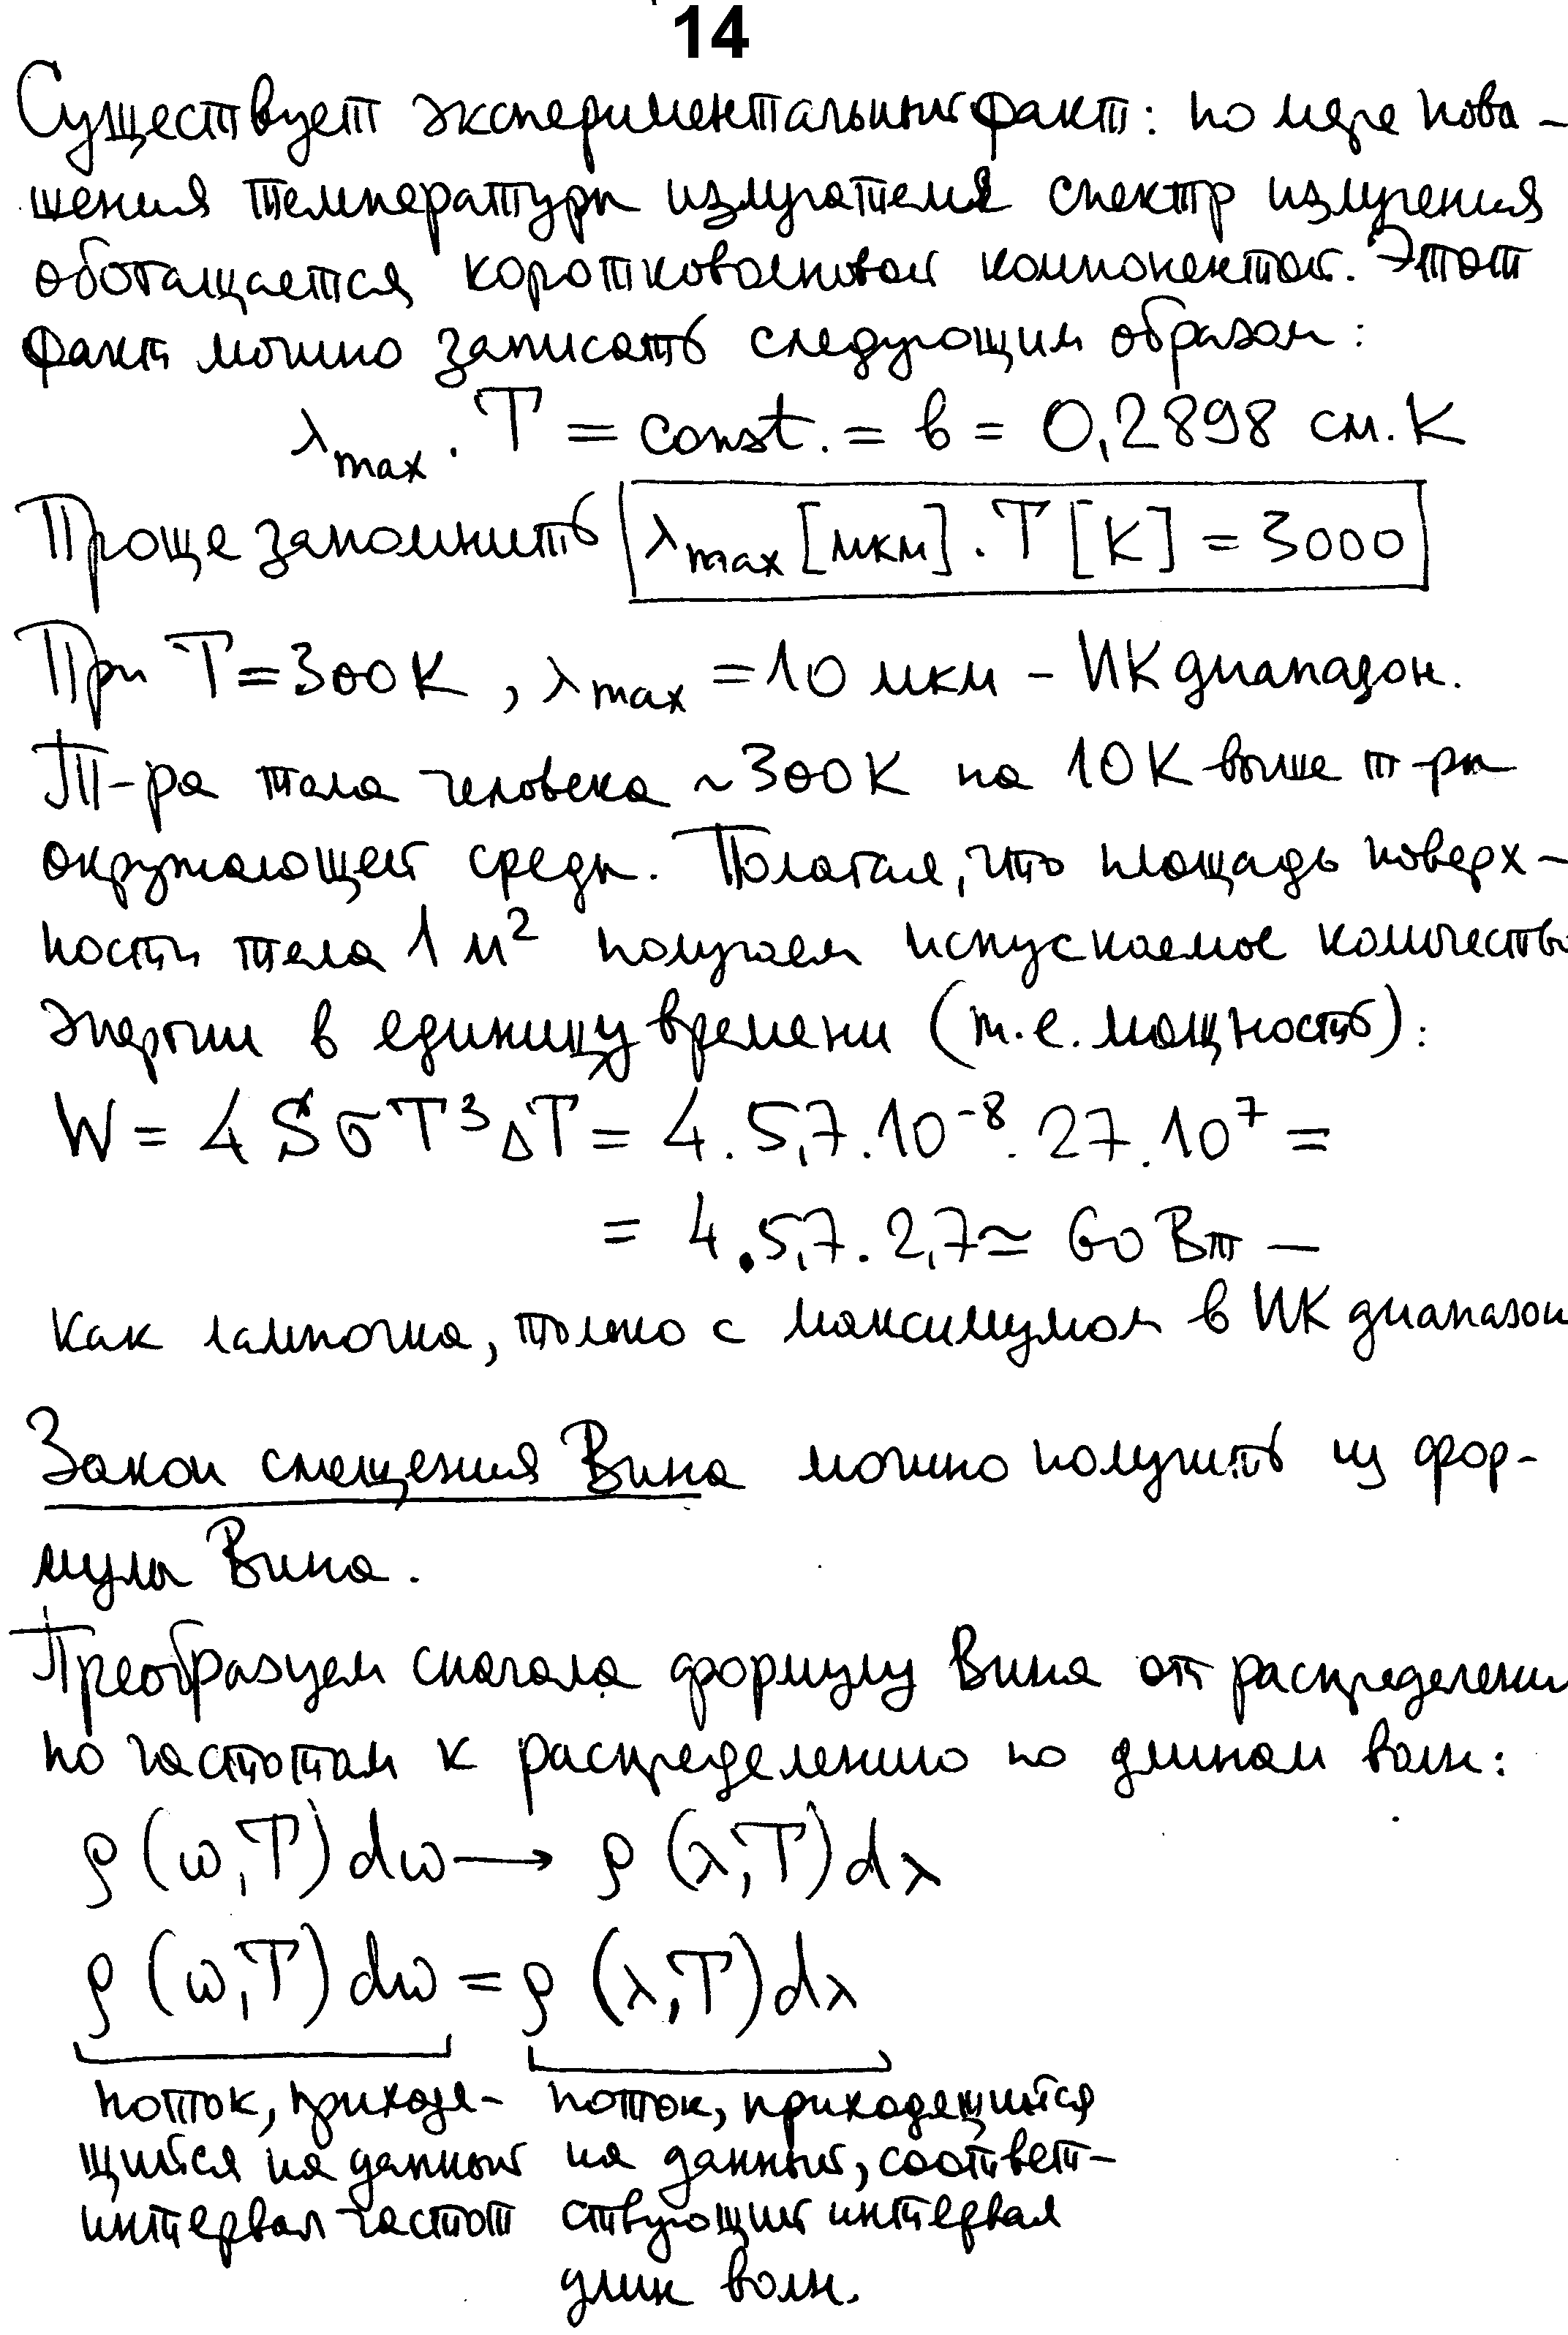 14
Существует экспериментальный факт: по мере повы-
шения температуры излучателя спектр излучения
обогащается коротковолновой компонентой. Этот
факт можно записать следующим образом:
λmax · T = const. = b = 0,2898 см·К
Проще запомнить λmax [мкм] · T [К] = 3000
При T = 300 К, λmax = 10 мкм - ИК диапазон.
Т-ра тела человека ~300К на 10К выше т-ры
окружающей среды. Полагая, что площадь поверх-
ности тела 1 м² получаем испускаемое количество
энергии в единицу времени (т.е. мощность):
W = 4 S σ T³ ΔT = 4 · 5,7 · 10⁻⁸ · 27 · 10⁷ =
= 4 · 5,7 · 2,7 ≃ 60 Вт —
как лампочка, только с максимумом в ИК диапазон
Закон смещения Вина можно получить из фор-
мулы Вина.
Преобразуем сначала формулу Вина от распределени
по частотам к распределению по длинам волн:
ρ(ω,T)dω → ρ(λ,T)dλ
ρ(ω,T)dω = ρ(λ,T)dλ
поток, приходя- поток, приходящийся
щийся на данный на данный, соответ-
интервал частот ствующий интервал
длин волн.